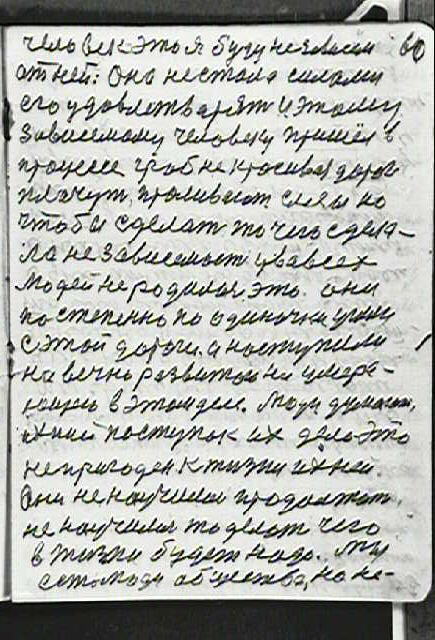 человек это я буду независим 60
от ней: Она не стала силами
его удовлетварят и этому
зависимому человеку пришел в
процессе гроб не красивая дорог
плачут, проливают слезы но
чтобы сделат то чего сдела-
ла независемост у вавсех
людей не родилос это. они
постепенно по одиночки ушли
с этой дороги. а наступили
на вечно развитой не умера-
ющию в этом деле. Люди думают,
ихний поступок их дело это
непригоден к жизни ихней.
Они не научилис продолжат,
не научилис то делат чего
в жизни будет надо. Мы
есть люди общества, но не-